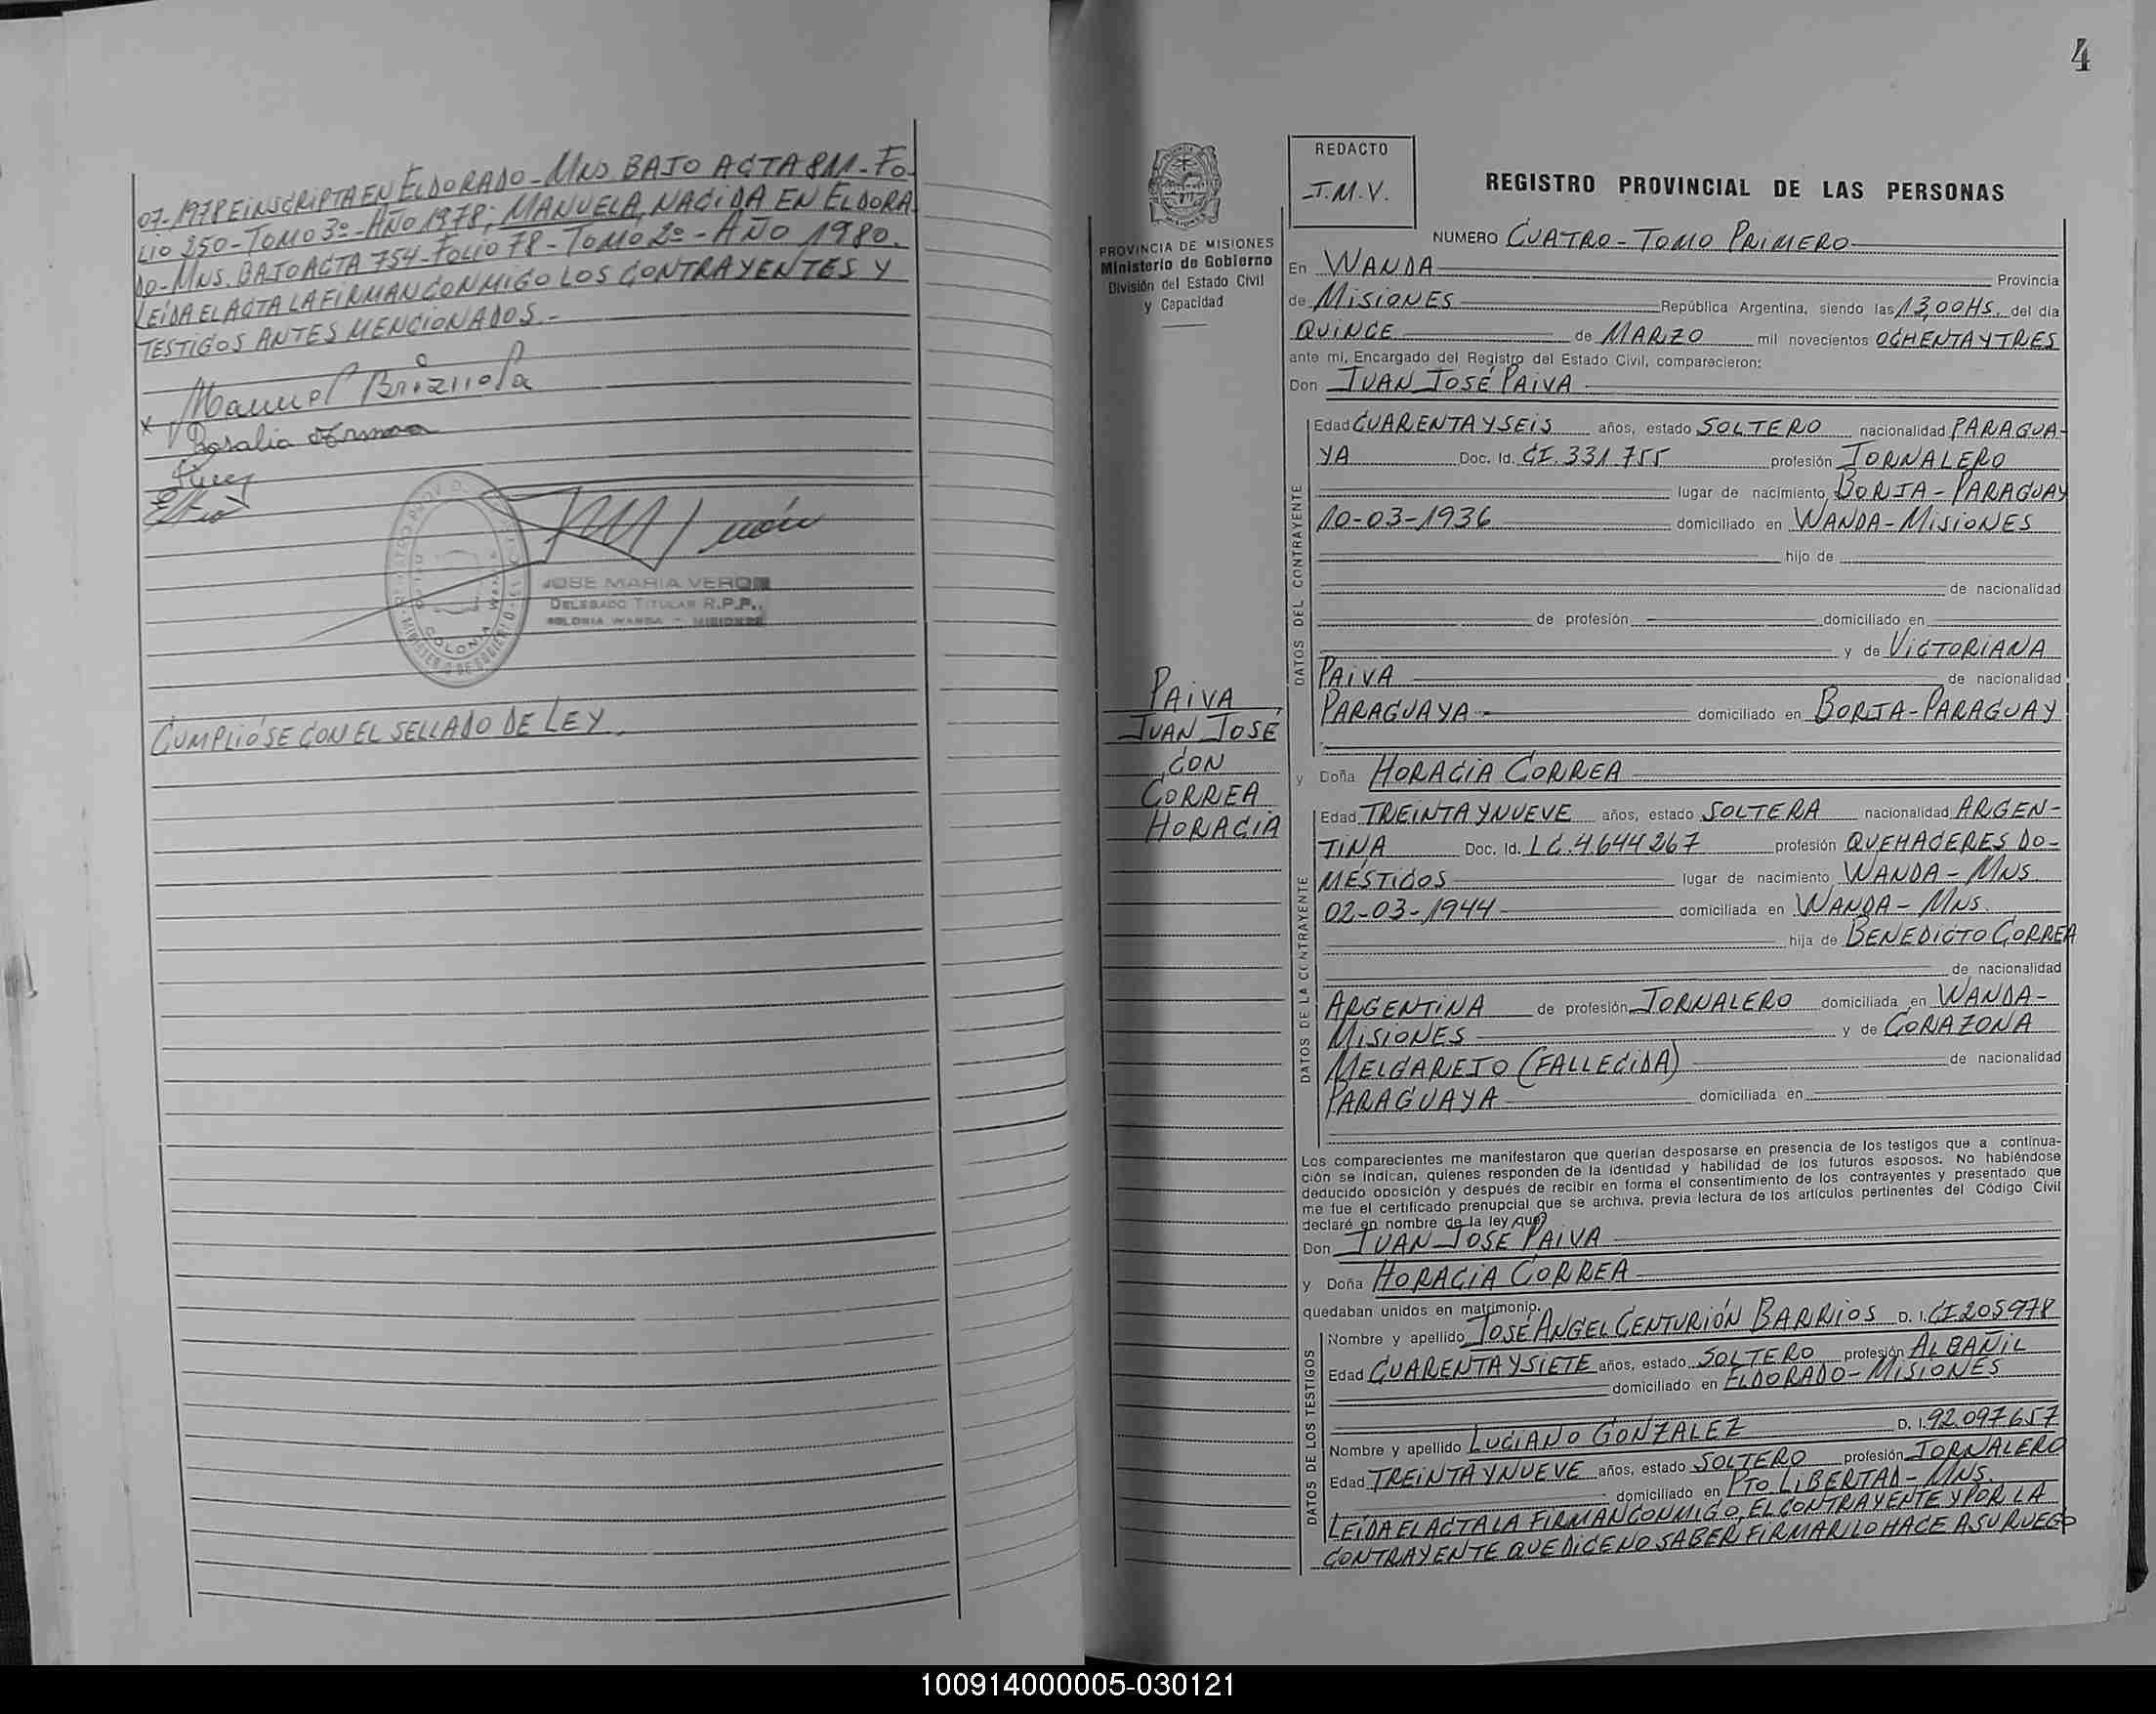 07-1978 E INSCRIPTA EN ELDORADO-MNS BAJO ACTA 811-FO-
LIO 250-TOMO 3º-AÑO 1978; MANUELA, NACIDA EN ELDORA-
DO-MNS. BAJO ACTA 754-FOLIO 78-TOMO 2º-AÑO 1980.
LEÍDA EL ACTA LA FIRMAN CONMIGO LOS CONTRAYENTES Y
TESTIGOS ANTES MENCIONADOS.-
x Manuel Brizuela
Rosalia
JOSE MARIA VERON
DELEGADO TITULAR R.P.P.
COLONIA WANDA - MISIONES
COLONIA
CUMPLIÓSE CON EL SELLADO DE LEY.
4
PROVINCIA DE MISIONES
Ministerio de Gobierno
División del Estado Civil
y Capacidad
PAIVA,
JUAN JOSE
CON
CORREA
HORACIA
REDACTO
J.M.V.
REGISTRO PROVINCIAL DE LAS PERSONAS
NUMERO CUATRO-TOMO PRIMERO
En WANDA Provincia
de MISIONES República Argentina, siendo las 13,00HS. del día
QUINCE de MARZO mil novecientos OCHENTA Y TRES
ante mi, Encargado del Registro del Estado Civil, comparecieron:
Don JUAN JOSÉ PAIVA
DATOS DEL CONTRAYENTE
Edad CUARENTA Y SEIS años, estado SOLTERO nacionalidad PARAGUA-
YA Doc. Id. CI.331.755 profesión JORNALERO
lugar de nacimiento BORJA-PARAGUAY
10-03-1936 domiciliado en WANDA-MISIONES
hijo de
de nacionalidad
de profesión domiciliado en
y de VICTORIANA
PAIVA de nacionalidad
PARAGUAYA domiciliado en BORJA-PARAGUAY
y Doña HORACIA CORREA
DATOS DE LA CONTRAYENTE
Edad TREINTA Y NUEVE años, estado SOLTERA nacionalidad ARGEN-
TINA Doc. Id. LC.4.644267 profesión QUEHACERES DO-
MÉSTICOS lugar de nacimiento WANDA-MNS
02-03-1944 domiciliada en WANDA-MNS.
hija de BENEDICTO CORREA
de nacionalidad
ARGENTINA de profesión JORNALERO domiciliada en WANDA-
MISIONES y de CORAZONA
MELGAREJO (FALLECIDA) de nacionalidad
PARAGUAYA domiciliada en
Los comparecientes me manifestaron que querían desposarse en presencia de los testigos que a continua-
ción se indican, quienes responden de la identidad y habilidad de los futuros esposos. No habiéndose
deducido oposición y después de recibir en forma el consentimiento de los contrayentes y presentado que
me fue el certificado prenupcial que se archiva, previa lectura de los artículos pertinentes del Código Civil
declaré en nombre de la ley que
Don JUAN JOSE PAIVA
y Doña HORACIA CORREA
quedaban unidos en matrimonio.
DATOS DE LOS TESTIGOS
Nombre y apellido JOSÉ ANGEL CENTURIÓN BARRIOS D. I. CI 205978
Edad CUARENTA Y SIETE años, estado SOLTERO profesión ALBAÑIL
domiciliado en ELDORADO-MISIONES
Nombre y apellido LUCIANO GONZALEZ D. I. 92.097657
Edad TREINTA Y NUEVE años, estado SOLTERO profesión JORNALERO
domiciliado en PTO LIBERTAD-MNS.
LEÍDA EL ACTA LA FIRMAN CONMIGO, EL CONTRAYENTE Y POR LA
CONTRAYENTE QUE DICE NO SABER FIRMAR LO HACE A SU RUEGO
100914000005-030121